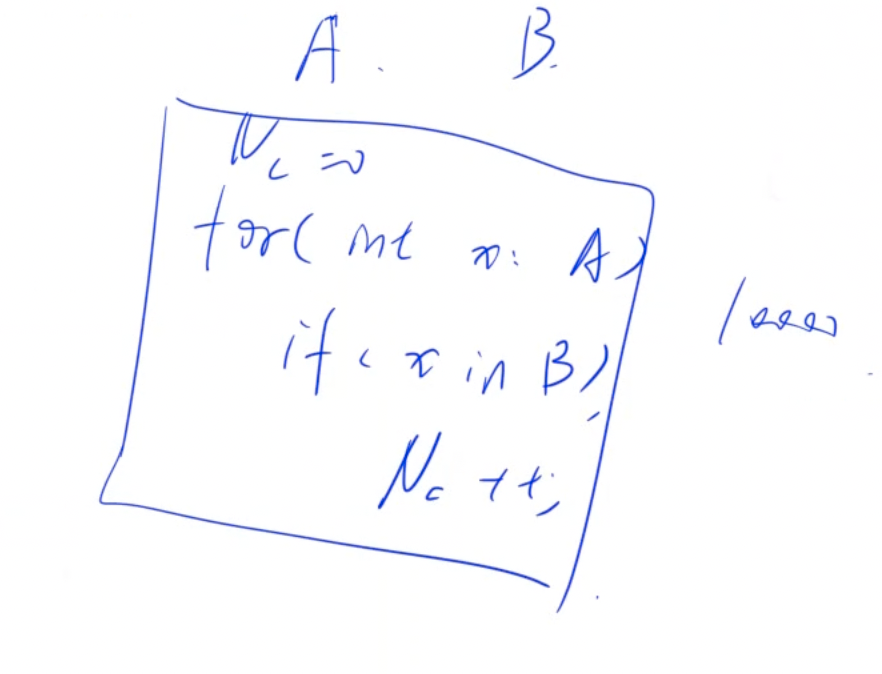 A. B.
Nc=0
for( int x: A)
if( x in B)
Nc ++;
10000